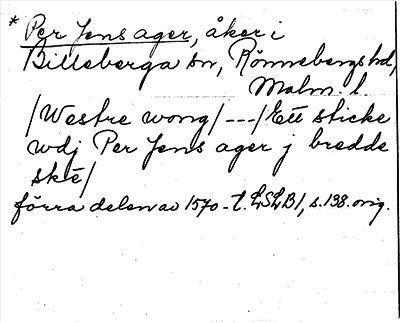 * Per Jens ager, åker i
Billeberga sn, Rönnebergs hd,
Malm. l.
/Westre wong/ --- / Ett sticke
wdj Per Jens ager j bredde
skē/
förra delen av 1570-t. LSLB1, s. 138. orig.